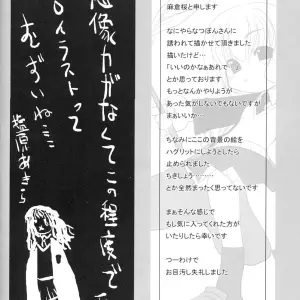 想像力がなくてこの程度で
イラストって
むずいね
塩原あきら
麻倉桜と申します
なにやらなつぽんさんに
誘われて描かせて頂きました
描いたけど…
「いいのかなぁあれで…
とか思っております
もっとなんかやりようが
あった気がしないでもないですが
まぁいいか…
ちなみにここの背景の絵を
ハグリットにしようとしたら
止められました
ちきしょう…
とか全然まったく思ってないです
まぁそんな感じで
もし気に入ってくれた方が
いたりしたら幸いです
つーわけで
お目汚し失礼しました